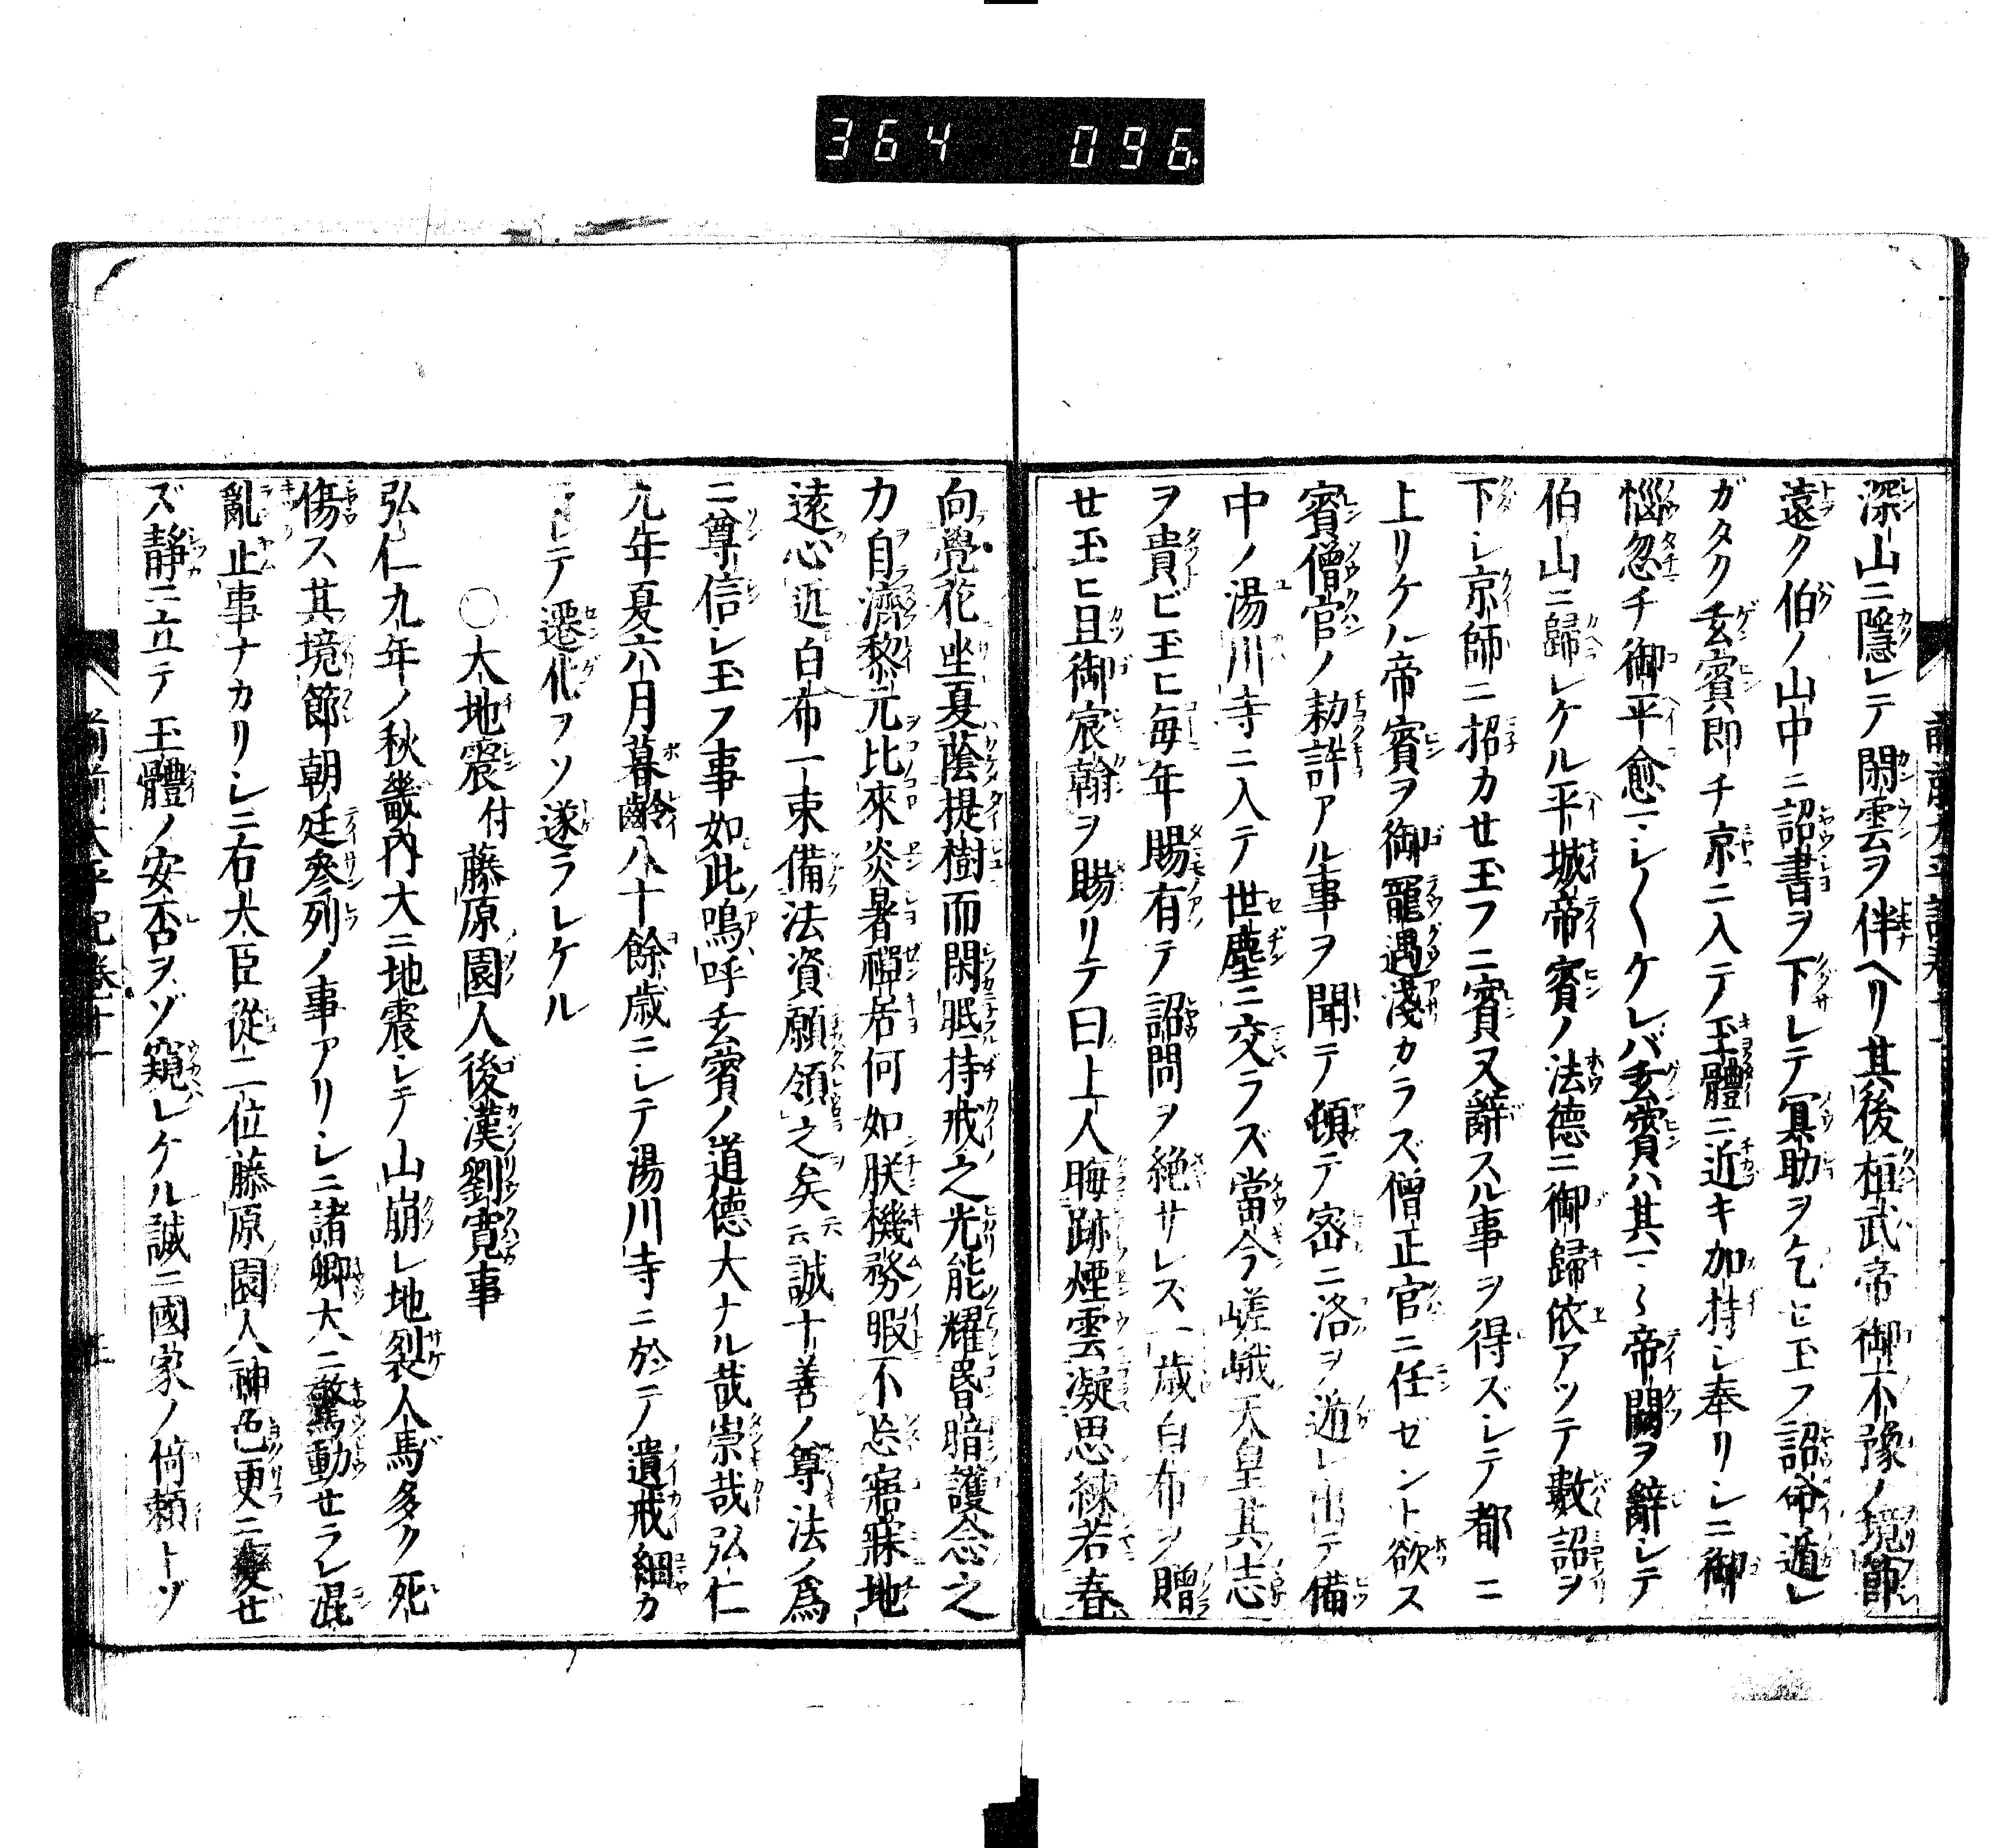 364 096
深山ニ隱レテ閑雲ヲ伴ヘリ其後桓武帝御不豫ノ境節
遠ク伯ノ山中ニ詔書ヲ下シテ冥助ヲ乞ヒ玉フ詔命遁レ
ガタク玄賓即チ京ニ入テ玉體ニ近キ加持シ奉リシニ御
惱忽チ御平愈マシ〱ケレバ玄賓ハ其マヽ帝闕ヲ辭シテ
伯山ニ歸シケル平城帝賓ノ法德ニ御歸依アツテ數詔ヲ
下シ京師ニ招カセ玉フニ賓又辭スル事ヲ得ズシテ都ニ
上リケル帝賓ヲ御寵遇淺カラズ僧正官ニ任ゼント欲ス
賓僧官ノ勅許アル事ヲ聞テ頓テ密ニ洛ヲ遁レ出テ備
中ノ湯川寺ニ入テ世塵ニ交ラズ當今嵯峨天皇其志
ヲ貴ビ玉ヒ每年賜有テ詔問ヲ絶サレズ一歳白布ヲ贈
セ玉ヒ且御宸翰ヲ賜リテ曰上人晦跡煙雲凝思練若春
向覺花坐夏蔭提樹而閑眠持戒之光能耀昏暗護念之
力自濟黎元比來炎暑禪居何如朕機務暇不忘寤寐地
遠心近白布一束備法資願領之矣云云誠十善ノ尊法ノ爲
ニ尊信シ玉フ事如此嗚呼玄賓ノ道德大ナル哉崇哉弘仁
九年夏六月暮齡八十餘歳ニシテ湯川寺ニ於テノ遺戒綱カ
シテ遷化ヲソ遂ラレケル
○大地震付藤原園人後漢劉寬事
弘仁九年ノ秋畿內大ニ地震シテ山崩レ地裂人馬多ク死
傷ス其境節朝廷參列ノ事アリシニ諸卿大ニ驚動セラレ混
亂止事ナカリシニ右大臣從二位藤原園人神色更ニ變セ
ズ靜ニ立テ玉體ノ安否ヲゾ窺レケル誠ニ國家ノ倚賴トゾ
前前太平記卷十一